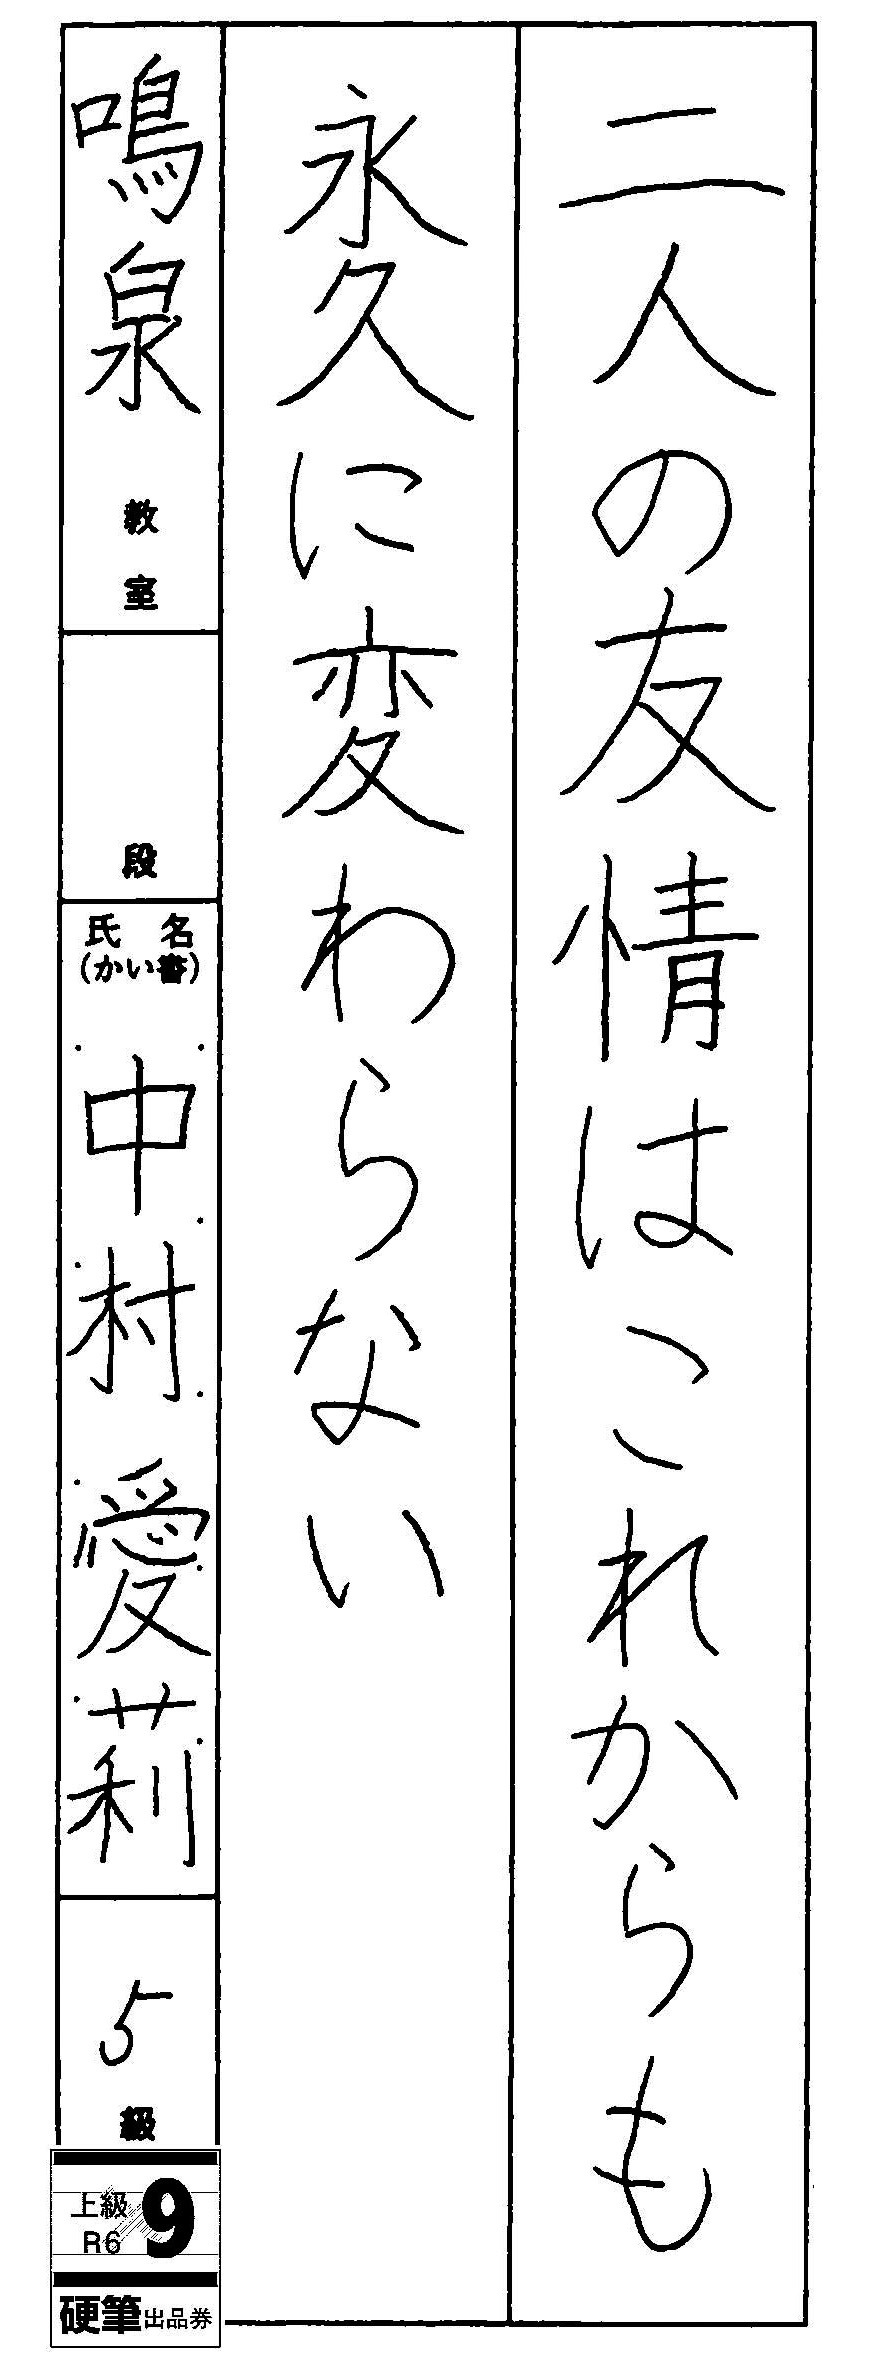 二人の友情はこれからも
永久に変わらない
鳴泉教室
段
氏名
(かい書)
中村愛莉
5級
上級
R6
9
硬筆出品券